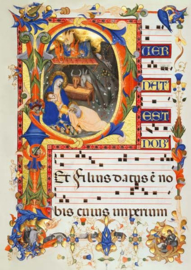 P UER
NAT
EST
NOB
Et Filius datus ē no
bis cuius imperium